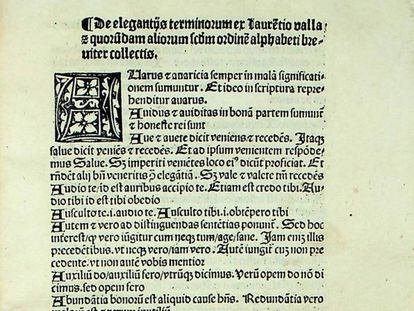 De elegantijs terminorum ex Laurẽtio valla
⁊ quorũdam aliorum scd̃m ordinẽ alphabeti bre
uiter collectis.
AUarus ⁊ auaricia semper in malã significati
onem sumuntur. Et ideo in scriptura repre
henditur auarus.
Auidus ⁊ auiditas in bonã partem sumunt̃
⁊ honeste rei sunt
Aue ⁊ auete dicit veniens ⁊ recedẽs. Itaqꝫ
salue dicit veniẽs ⁊ recedẽs. Et ad ipsum venientem respõde
mus Salue. Sꝫ imperiti veniẽtes loco eiꝰ dicũt proficiat. Et
rñdẽt alij bñ veneritis ꝑ elegãtiã. Sꝫ vale ⁊ valete tm̃ recedẽs
Audio te/id est auribus accipio te. Etiam est credo tibi. Au
dio tibi id est tibi obedio
Ausculto te.i.audio te. Ausculto tibi.i.obtẽpero tibi
Autem ⁊ vero ad distinguendas sentẽtias ponunt̃. Sed hoc
interest/ꝙ vero iũgitur cum neqꝫ tum/age/sane. Iam cum illis
precedẽtibus.vt neqꝫ vero/iam vero. Autẽ iũgit̃ cũ non pre
cedente.vt non autẽ vobis mentior
Auxiliũ do/auxiliũ fero/vtrũqꝫ dicimus. Verũ opem do nõ di
cimus.sed opem fero
Abundãtia bonorũ est aliquid cause hñs. Redundãtia vero